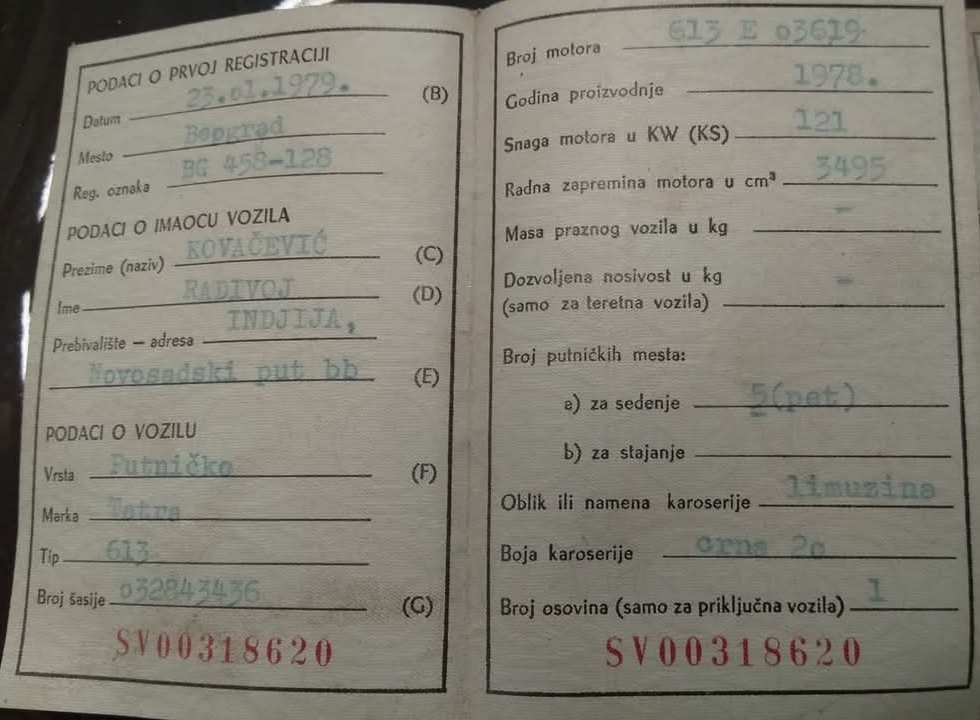 PODACI O PRVOJ REGISTRACIJI
Datum 23.o1.1979. (B)
Mesto Beograd
Reg. oznaka BG 458-128
PODACI O IMAOCU VOZILA
Prezime (naziv) KOVAČEVIĆ (C)
Ime RADIVOJ (D)
Prebivalište — adresa INDJIJA,
Novosadski put bb (E)
PODACI O VOZILU
Vrsta Putničko (F)
Marka Tatra
Tip 613
Broj šasije o32843436 (G)
SV00318620
Broj motora 613 E o3619
Godina proizvodnje 1978.
Snaga motora u KW (KS) 121
Radna zapremina motora u cm³ 3495
Masa praznog vozila u kg -
Dozvoljena nosivost u kg
(samo za teretna vozila) -
Broj putničkih mesta:
a) za sedenje 5(pet)
b) za stajanje
Oblik ili namena karoserije limuzina
Boja karoserije crna 2o
Broj osovina (samo za priključna vozila) 1
SV00318620